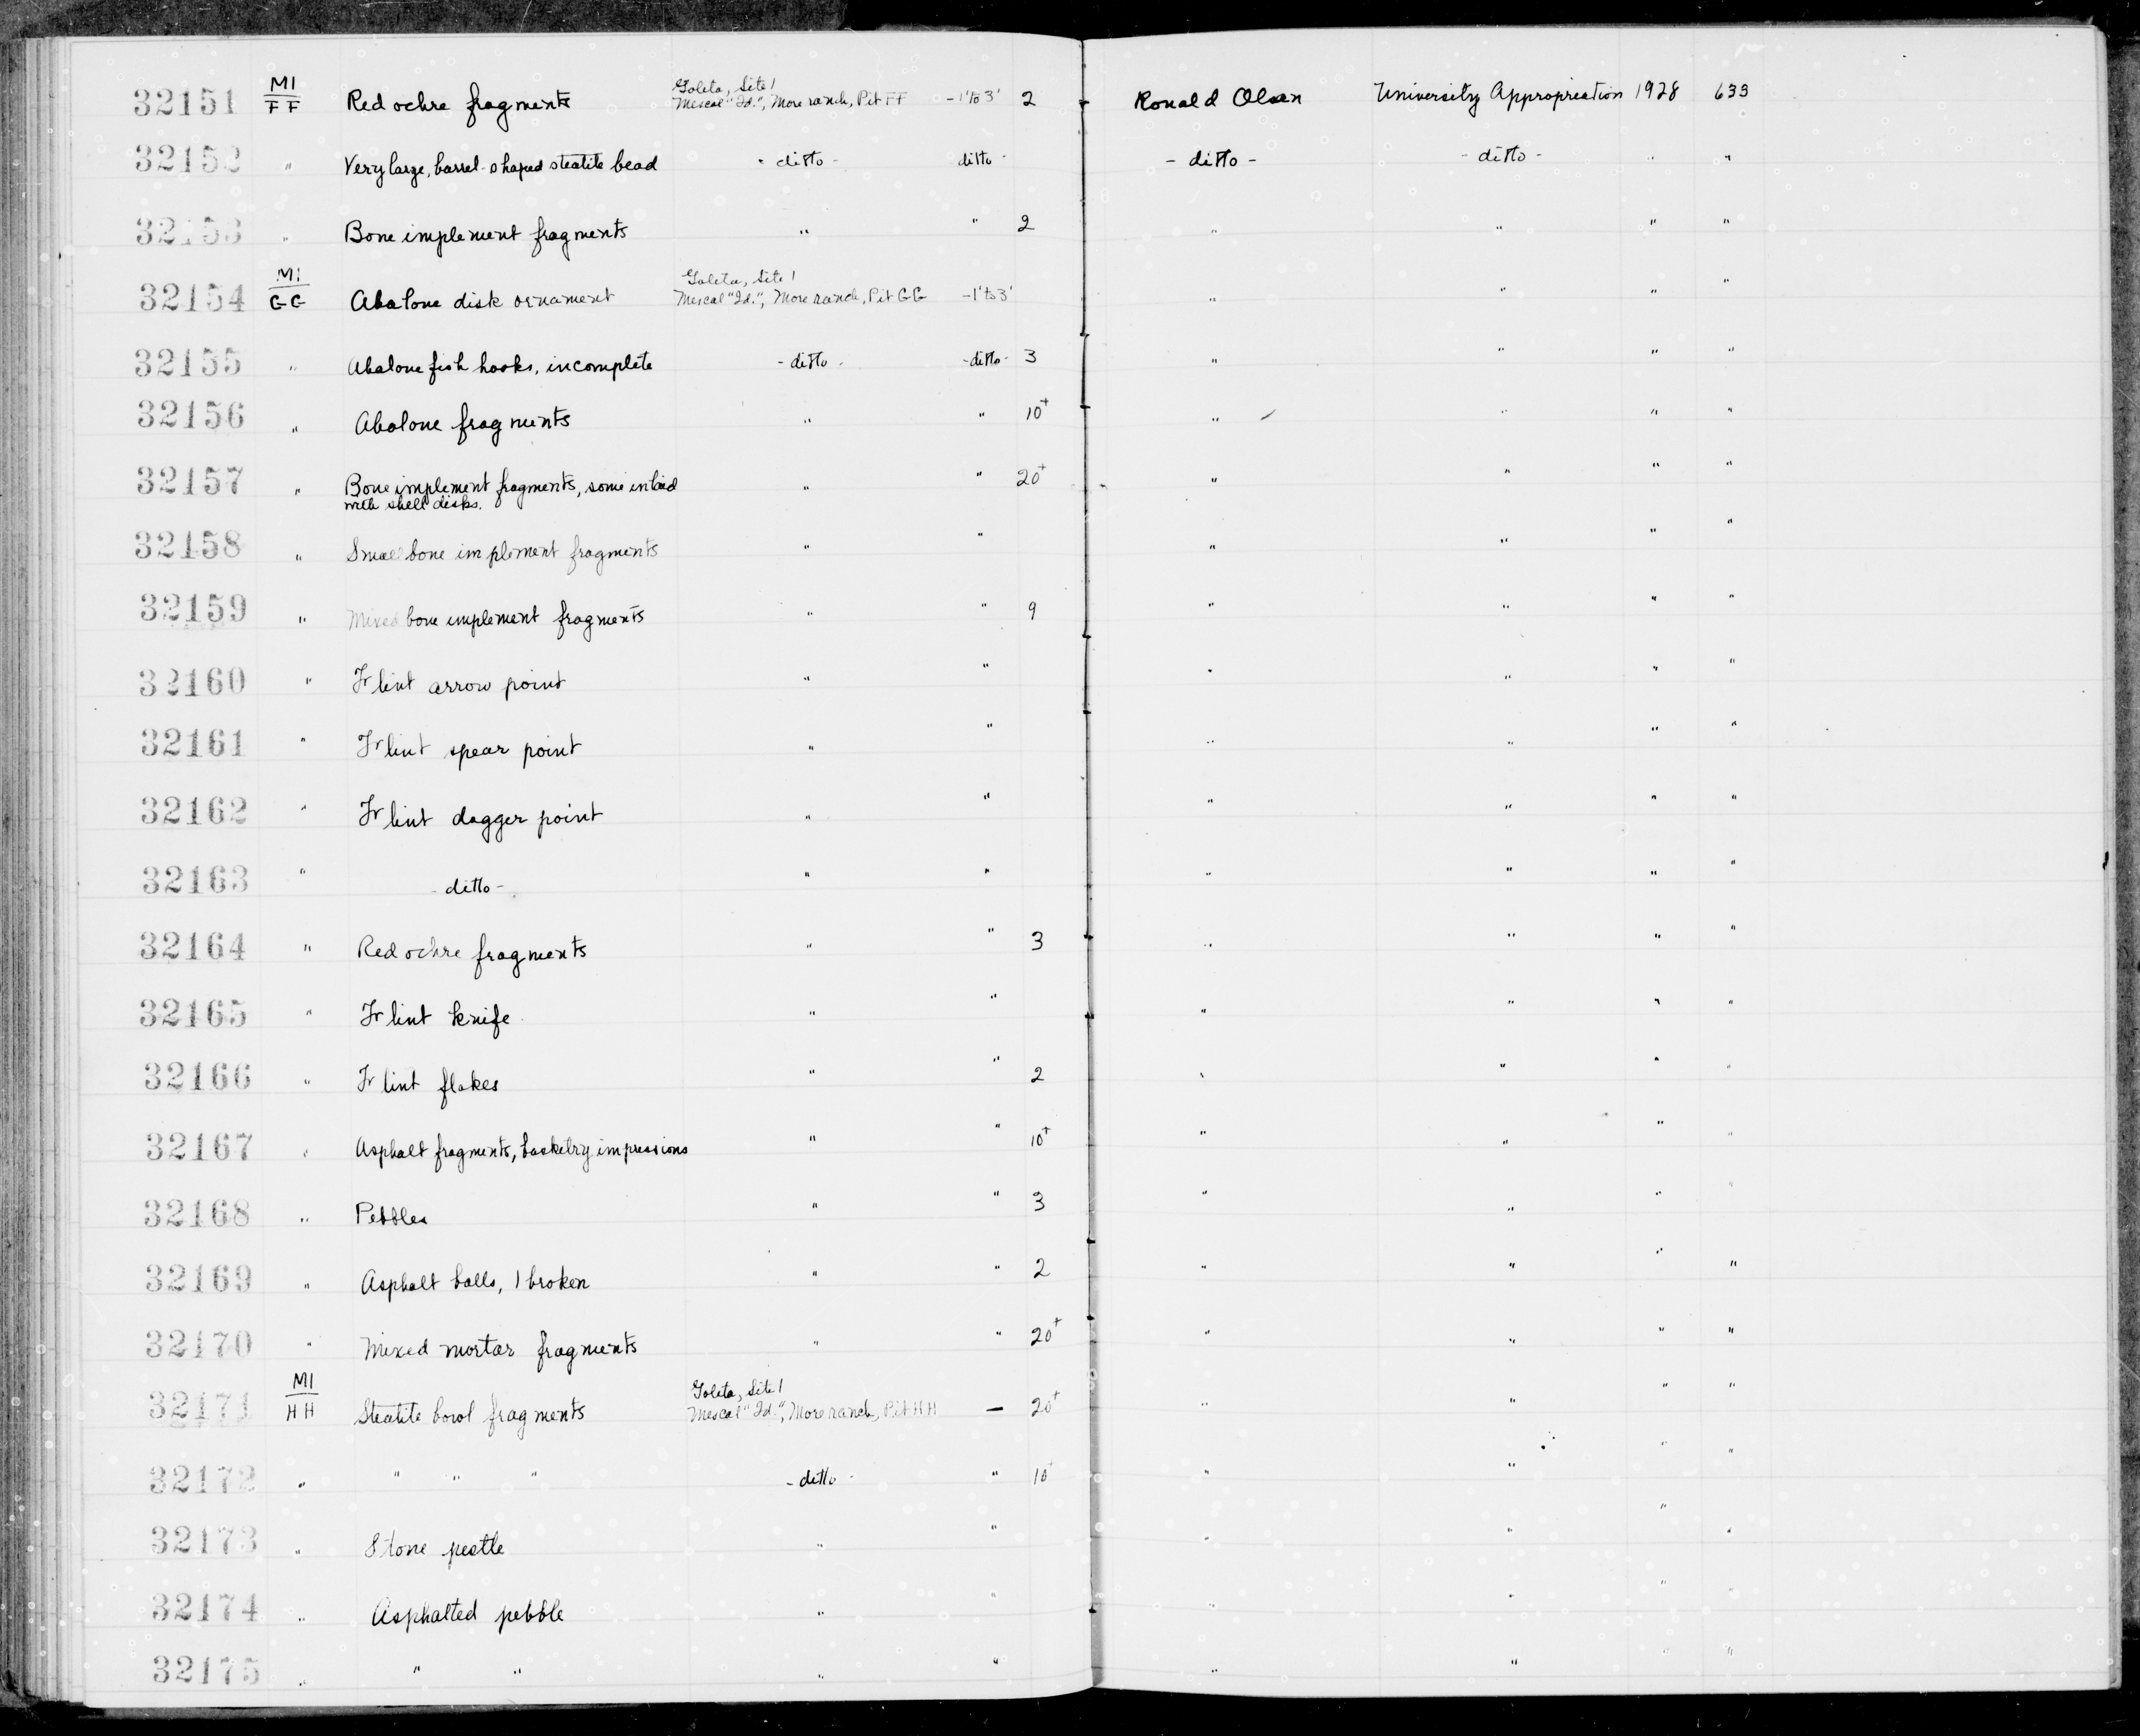 32151 M1 FF Red ochre fragments Goleta, Site 1 Mescal "Id.", More ranch, Pit FF -1' to 3' 2 Ronald Olson University Appropriation 1928 633
32152 " Very large, barrel-shaped steatite bead - ditto - ditto - - ditto - - ditto - " "
32153 " Bone implement fragments " " 2 " " " "
32154 M1 GG Abalone disk ornament Goleta, Site 1 Mescal "Id.", More ranch, Pit GG -1' to 3' " " " "
32155 " Abalone fish hooks, incomplete - ditto - - ditto - 3 " " " "
32156 " Abalone fragments " " 10+ " " " "
32157 " Bone implement fragments, some inlaid " " 20+ " " " "
with shell disks.
32158 " Small bone implement fragments " " " " " "
32159 " Mixed bone implement fragments " " 9 " " " "
32160 " Flint arrow point " " " " " "
32161 " Flint spear point " " " " " "
32162 " Flint dagger point " " " " " "
32163 " - ditto - " " " " " "
32164 " Red ochre fragments " " 3 " " " "
32165 " Flint knife " " " " " "
32166 " Flint flakes " " 2 " " " "
32167 " Asphalt fragments, basketry impressions " " 10+ " " " "
32168 " Pebbles " " 3 " " " "
32169 " Asphalt balls, 1 broken " " 2 " " " "
32170 " Mixed mortar fragments " " 20+ " " " "
32171 M1 HH Steatite bowl fragments Goleta, Site 1 Mescal "Id.", More ranch, Pit HH — 20+ " " " "
32172 " " " " - ditto - " 10+ " " " "
32173 " Stone pestle " " " " " "
32174 " Asphalted pebble " " " " " "
32175 " " " " " " " " "